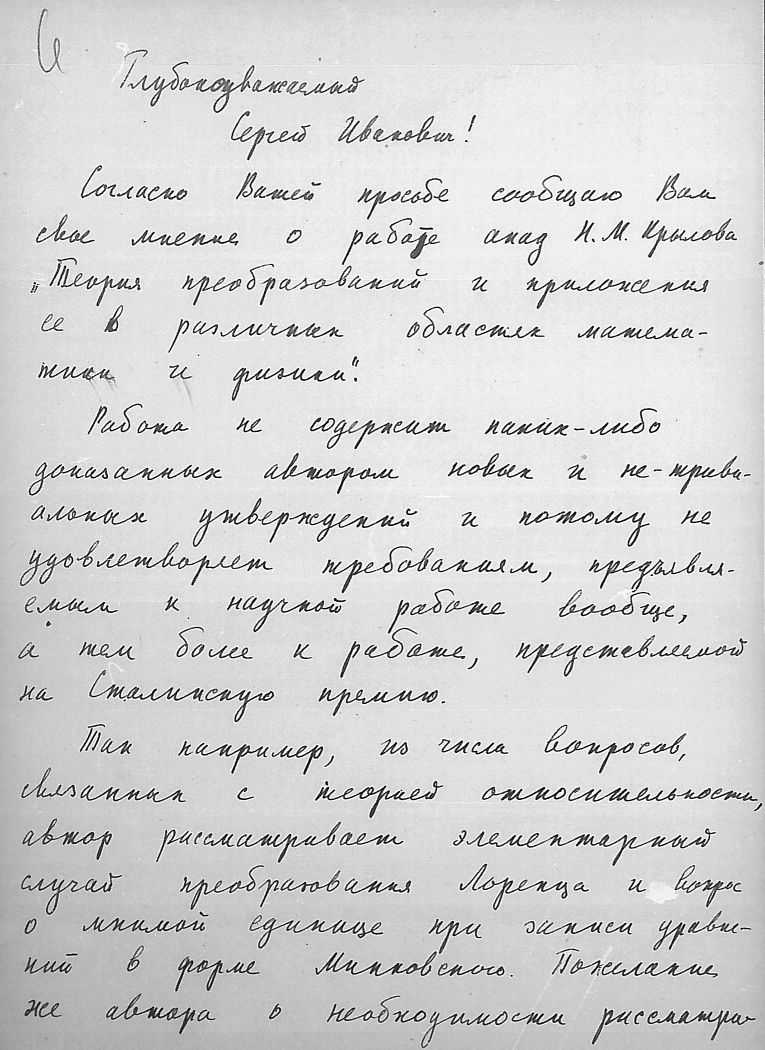 Глубокоуважаемый
Сергей Иванович!
Согласно Вашей просьбе сообщаю Вам
свое мнение о работе акад Н. М. Крылова
„Теория преобразований и приложения
ее в различных областях матема-
тики и физики".
Работа не содержит каких-либо
доказанных автором новых и не-триви-
альных утверждений и потому не
удовлетворяет требованиям, предъявля-
емым к научной работе вообще,
а тем более к работе, представляемой
на Сталинскую премию.
Так например, из числа вопросов,
связанных с теорией относительности,
автор рассматривает элементарный
случай преобразования Лоренца и вопрос
о мнимой единице при записи уравне-
ний в форме Минковского. Пожелание
же автора о необходимости рассматри-